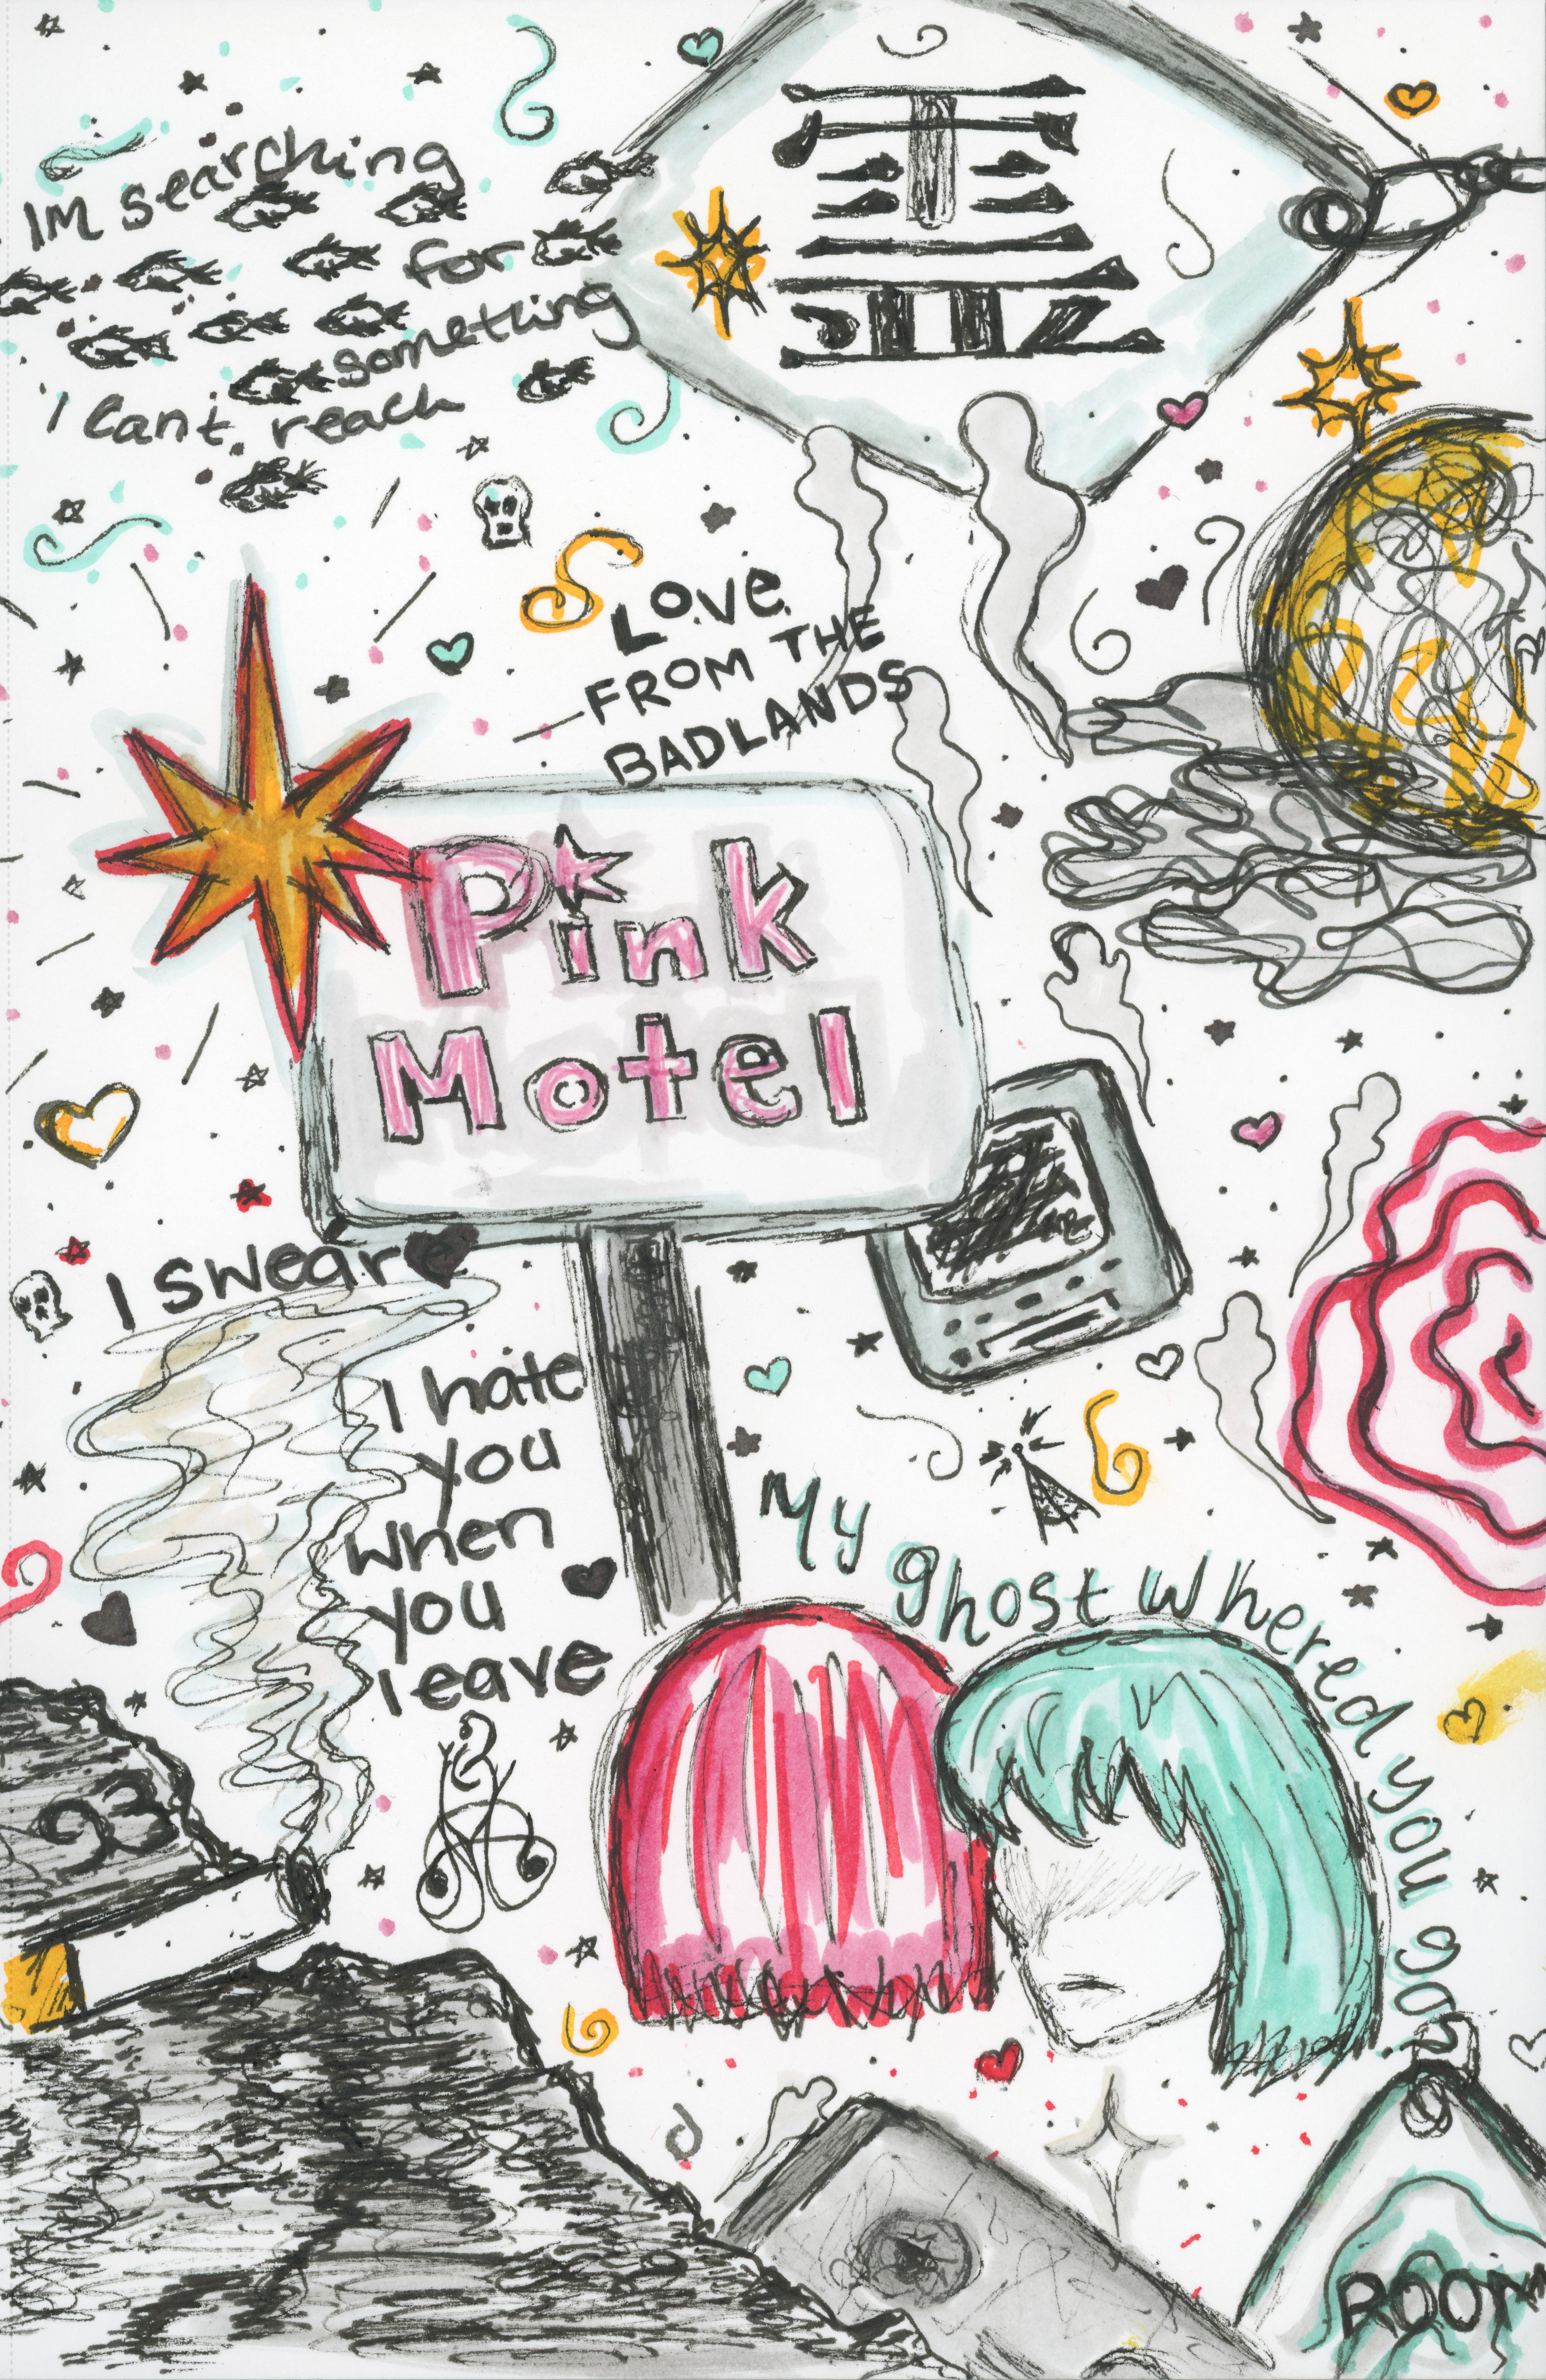 IM searching
for
something
I cant. reach
LOVE
FROM THE
BADLANDS
Pink
Motel
I sweare
I hate
you
when
you
leave
My ghost whered you go?
93
ROOM